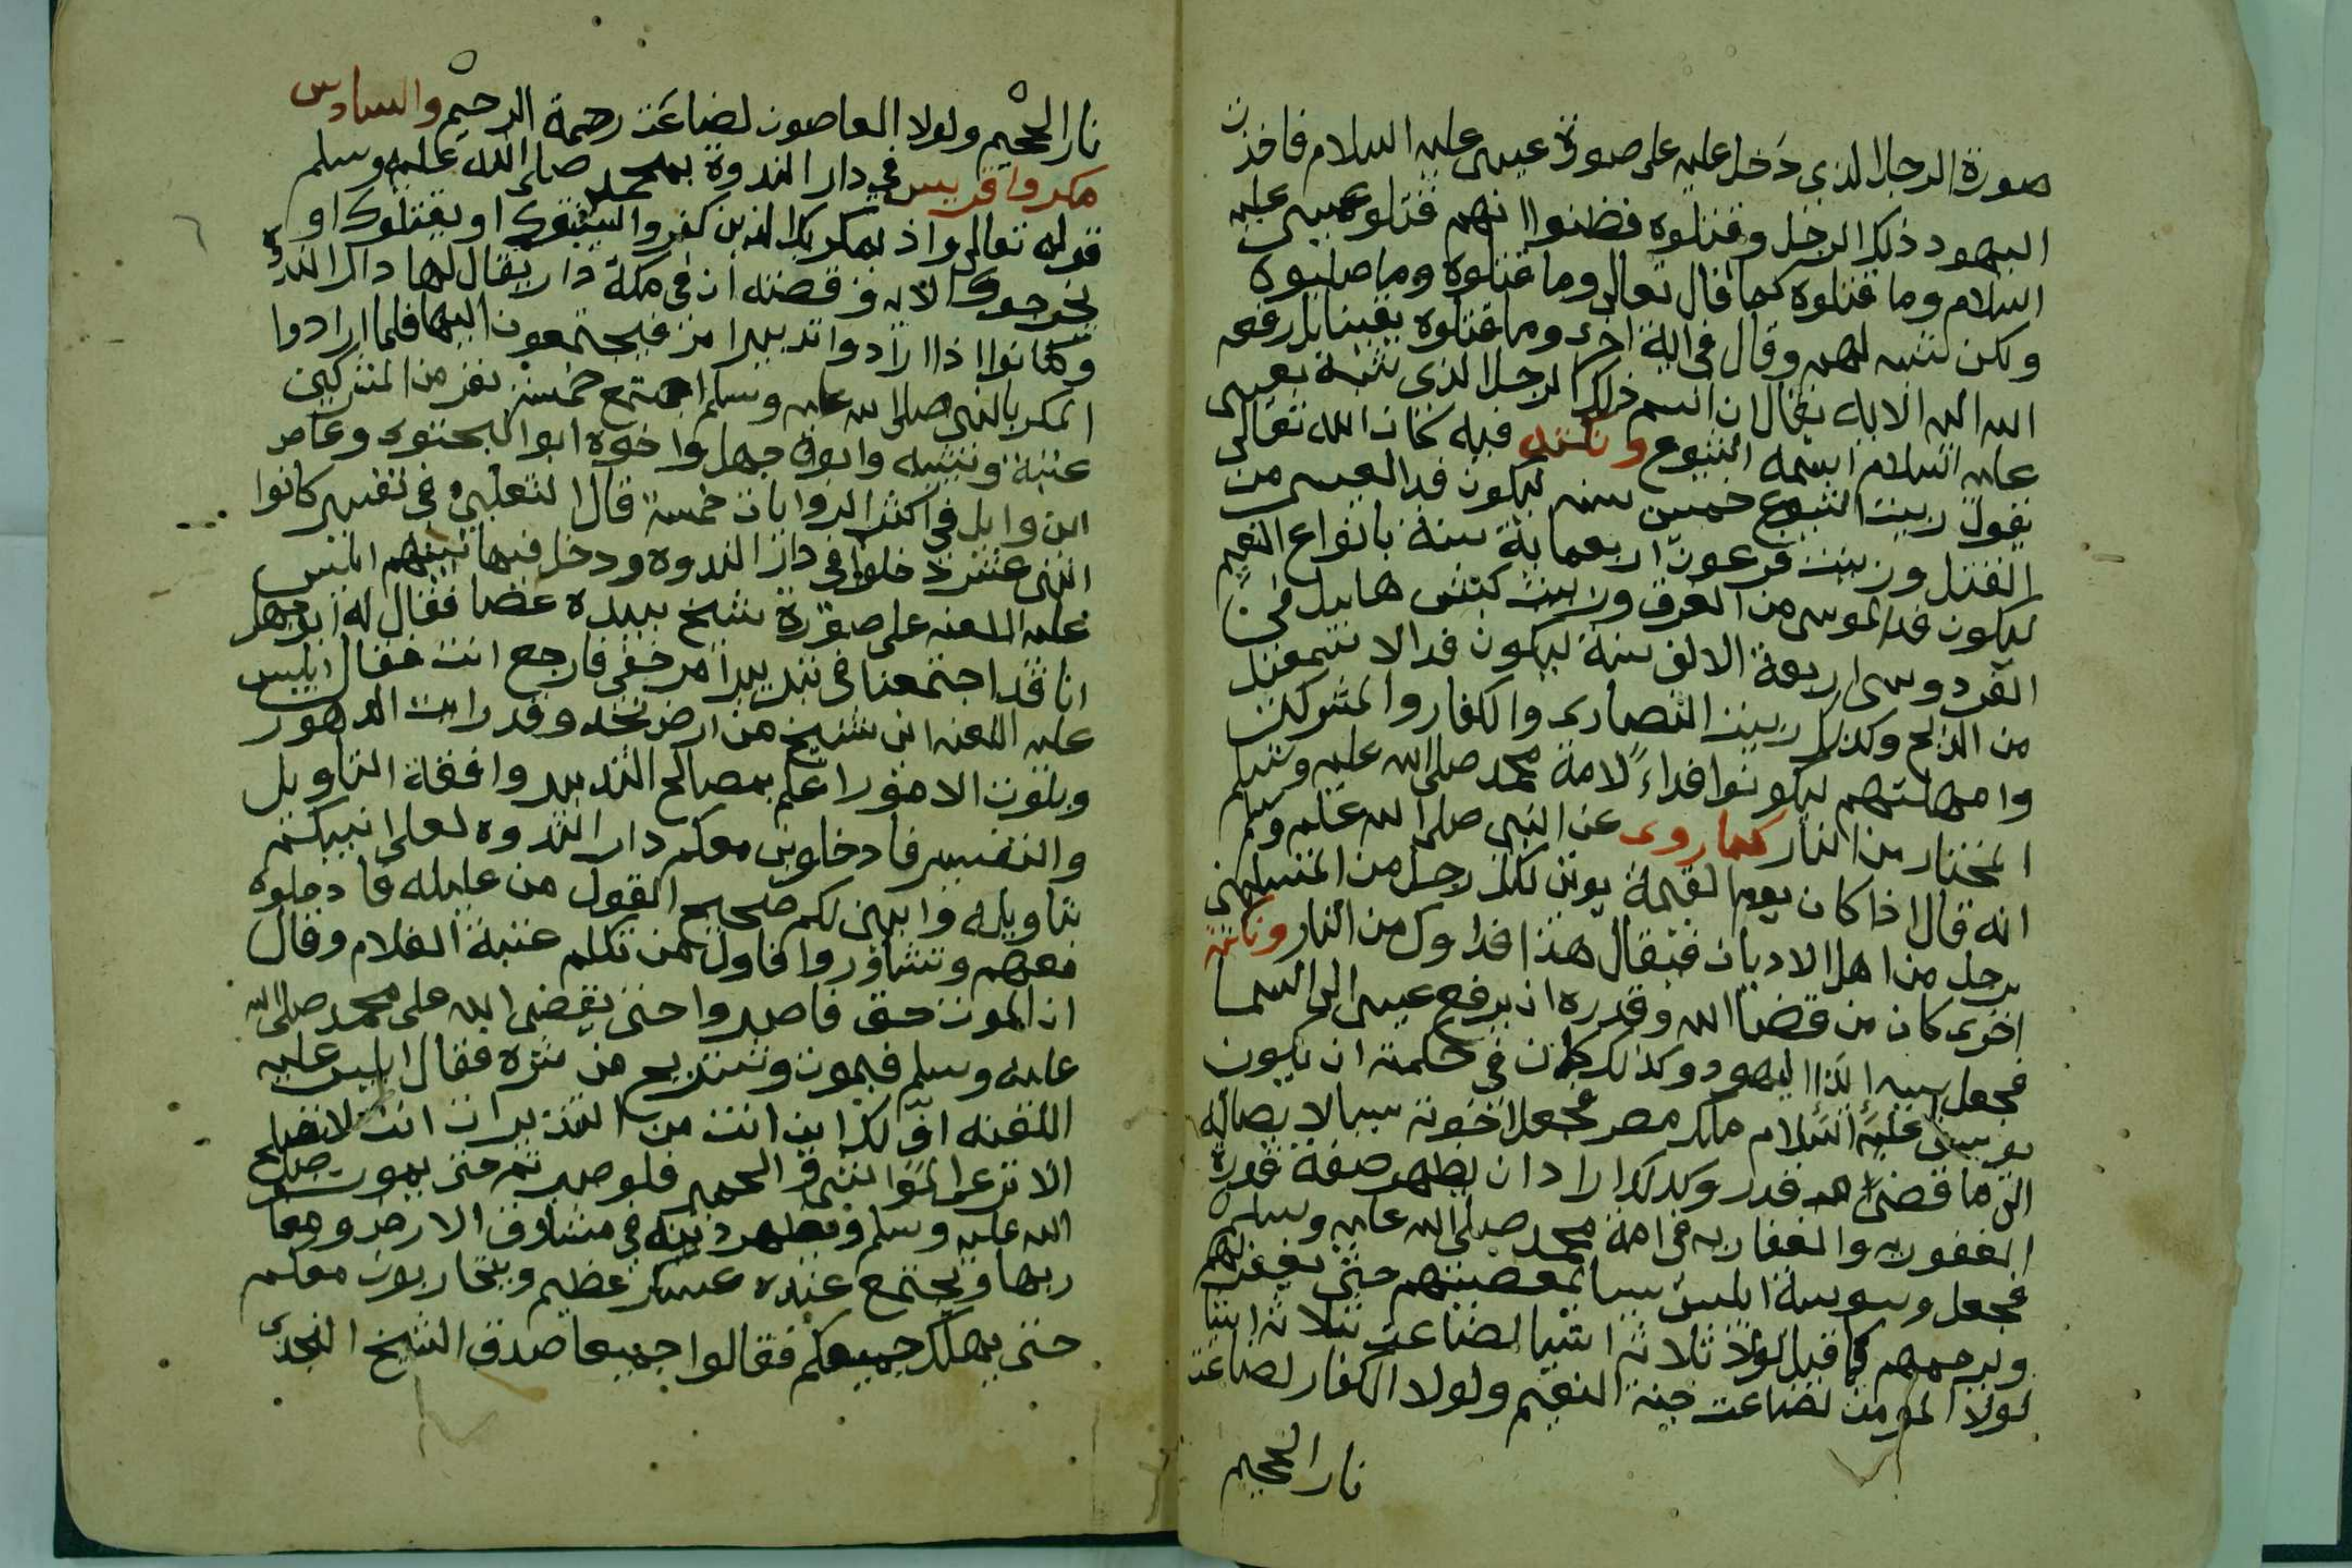 صورة الرجل الذي دخل عليه على صورة عيسى عليه السلام فاخذت
اليهود ذلك الرجل وقتلوه فظنوا انهم قتلوا عيسى عليه
السلام وما قتلوه كما قال تعالى وما قتلوه وما صلبوه
ولكن شبه لهم وقال في اية اخرى وما قتلوه يقينا بل رفعه
الله اليه الاية يقال ان اسم ذلك الرجل الذي شبه بعيسى
عليه السلام اسمه اشيوع ونكته فيه كان الله تعالى
يقول ربيت اشيوع خمسين سنه ليكون فدا لعيسى من
القتل وربيت فرعون اربعماية سنة بانواع النعيم
ليكون فدا لموسى من الغرق وربيت كبش هابيل في
الفردوس اربعة الالف سنة ليكون فدا لاسمعيل
من الذبح وكذلك ربيت النصارى والكفار والمشركين
وامهلتهم ليكونوا فداء لامة محمد صلى الله عليه وسلم
المختار من النار كما روى عن النبي صلى الله عليه وسلم
انه قال اذا كان يوم القيمة يوتى لكل رجل من المسلمين
برجل من اهل الاديان فيقال هذا فداوك من النار ونكتة
اخرى كان من قضا الله وقدره ان يرفع عيسى الى السما
فجعل سببه ايذا اليهود وكذلك كان في حكمته ان يكون
يوسف عليه السلام ملك مصر فجعل اخوته سببا لايصاله
الى ما قضى الله قدر وكذلك اراد ان يظهر صفة قدرة
الغفورية والغفارية في امة محمد صلى الله عليه وسلم
فجعل وسوسة ابليس سببا لمعصيتهم حتى يغفر لهم
ويرحمهم كما قيل لولا ثلاثة اشيا لضاعت ثلاثة اشيا
لولا المومن لضاعت جنة النعيم ولولا الكفار لضاعت
نار الجحيم
نار الجحيم ولولا العاصون لضاعت رحمة الرحيم والسادس
مكروا قريس في دار الندوة بمحمد صلى الله عليه وسلم
قوله تعالى واذ يمكر بك الذين كفروا ليثبتوك او يقتلوك او
يخرجوك الاية وقصته ان في مكة دار يقال لها دار الندوة
وكانوا اذا ارادوا تدبيرا مر فيجتمعون اليها فلما ارادوا
المكر بالنبي صلى الله عليه وسلم اجتمع خمسة نفر من المشركين
عتبة وشيبه وابوا جهل واخوه ابوا البحتوى وعاص
ابن وايل في اكثر الروايات خمسة قال الثعلبي في تفسير كانوا
اثنى عشر دخلوا في دار الندوه ودخل فيما بينهم ابليس
عليه اللعنه على صورة شيخ بيده عصا فقال له ابو جهل
انا قد اجتمعنا في تدبير امر خفي فارجع انت فقال ابليس
عليه اللعنه اني شيخ من ارض نجد وقد رايت الدهور
وبلوت الامور اعلم بمصالح التدبير وافقة التاويل
والتفسير فادخلوني معكم دار الندوه لعلى انبيكم
تاويله وابين لكم صحيح القول من عليله فادخلوه
معهم وتشاوروا فاول من تكلم عتبة الغلام وقال
ان الموت حق فاصبروا حتى يقضي الله على محمد صلى الله
عليه وسلم فيموت ونستريح من شره فقال ابليس عليه
اللعنه اف لك اين انت من التدبير ان انت لا تصلح
الا ترعى المواشي والحمير فلو صبرتم حتى يموت صلى
الله عليه وسلم ويظهر دينه في مشارق الارض ومغا
ربها ويجتمع عنده عسكر عظيم ويتحاربون معكم
حتى يهلك جميعكم فقالوا جميعا صدق الشيخ النجدى